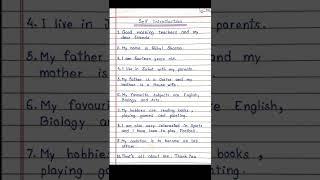 Self Introduction
1. Good morning teachers and my
dear friends
2. My name is Rahul Sharma.
3. I am fourteen years old.
4. I live in with my parents.
5. My father is a Doctor and my
mother is a house wife.
6. My favourite subjects are English,
Biology and Arts.
7. My hobbies are reading books,
playing games and painting.
8. I am also very interested in Sports
and I have love to play Football.
9. My ambition is to become an IAS
officer.
10. That's all about me. Thank You
4. I live in
5. My father
mother is
6. My favou
Biology
7. My hobbies
playing
parents.
my
English,
books,